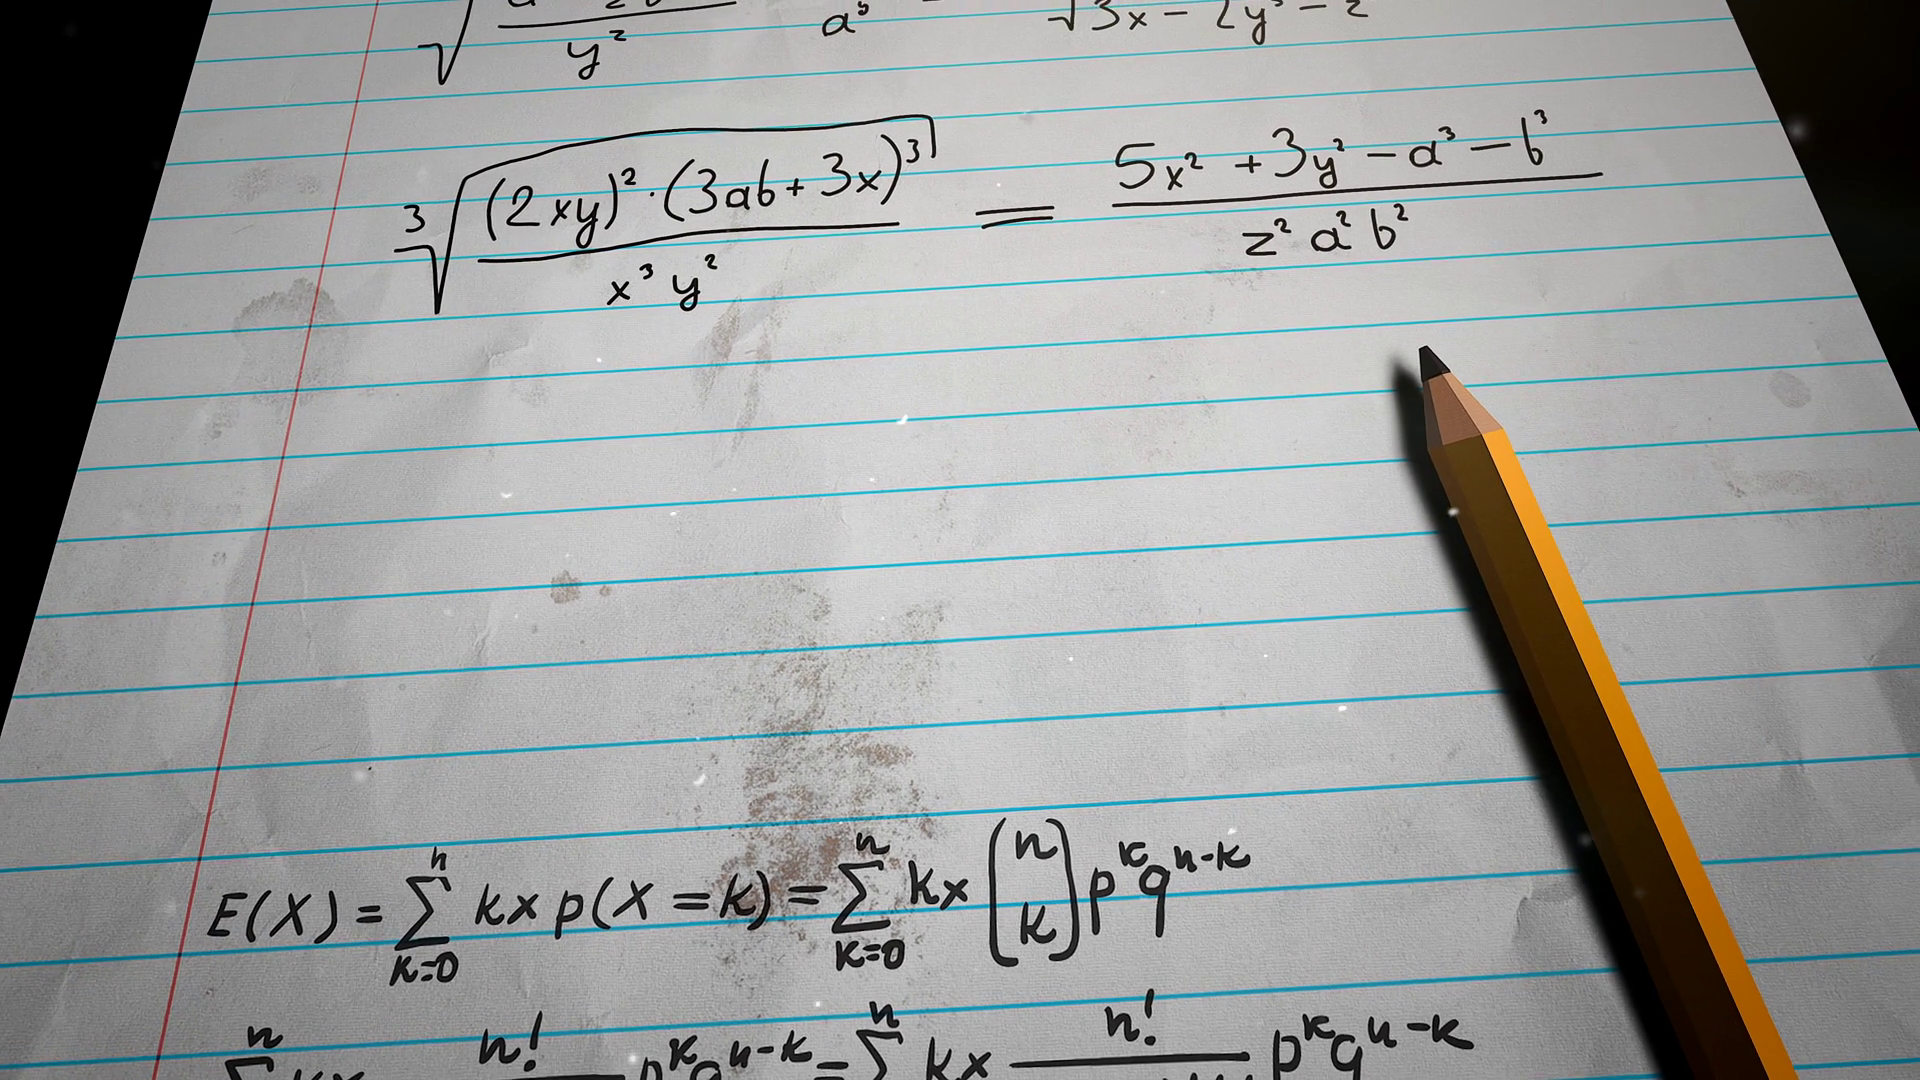 y² a³ √3x - 2y³ - z
³√((2xy)² · (3ab + 3x)³ / x³ y²) = (5x² + 3y² - a³ - b³) / (z² a² b²)
E(X) = ∑ₖ₌₀ⁿ kx p(X = k) = ∑ₖ₌₀ⁿ kx (n k) pᵏ qⁿ⁻ᵏ
n n! pᵏ qⁿ⁻ᵏ = ∑ⁿ kx n! pᵏ qⁿ⁻ᵏ